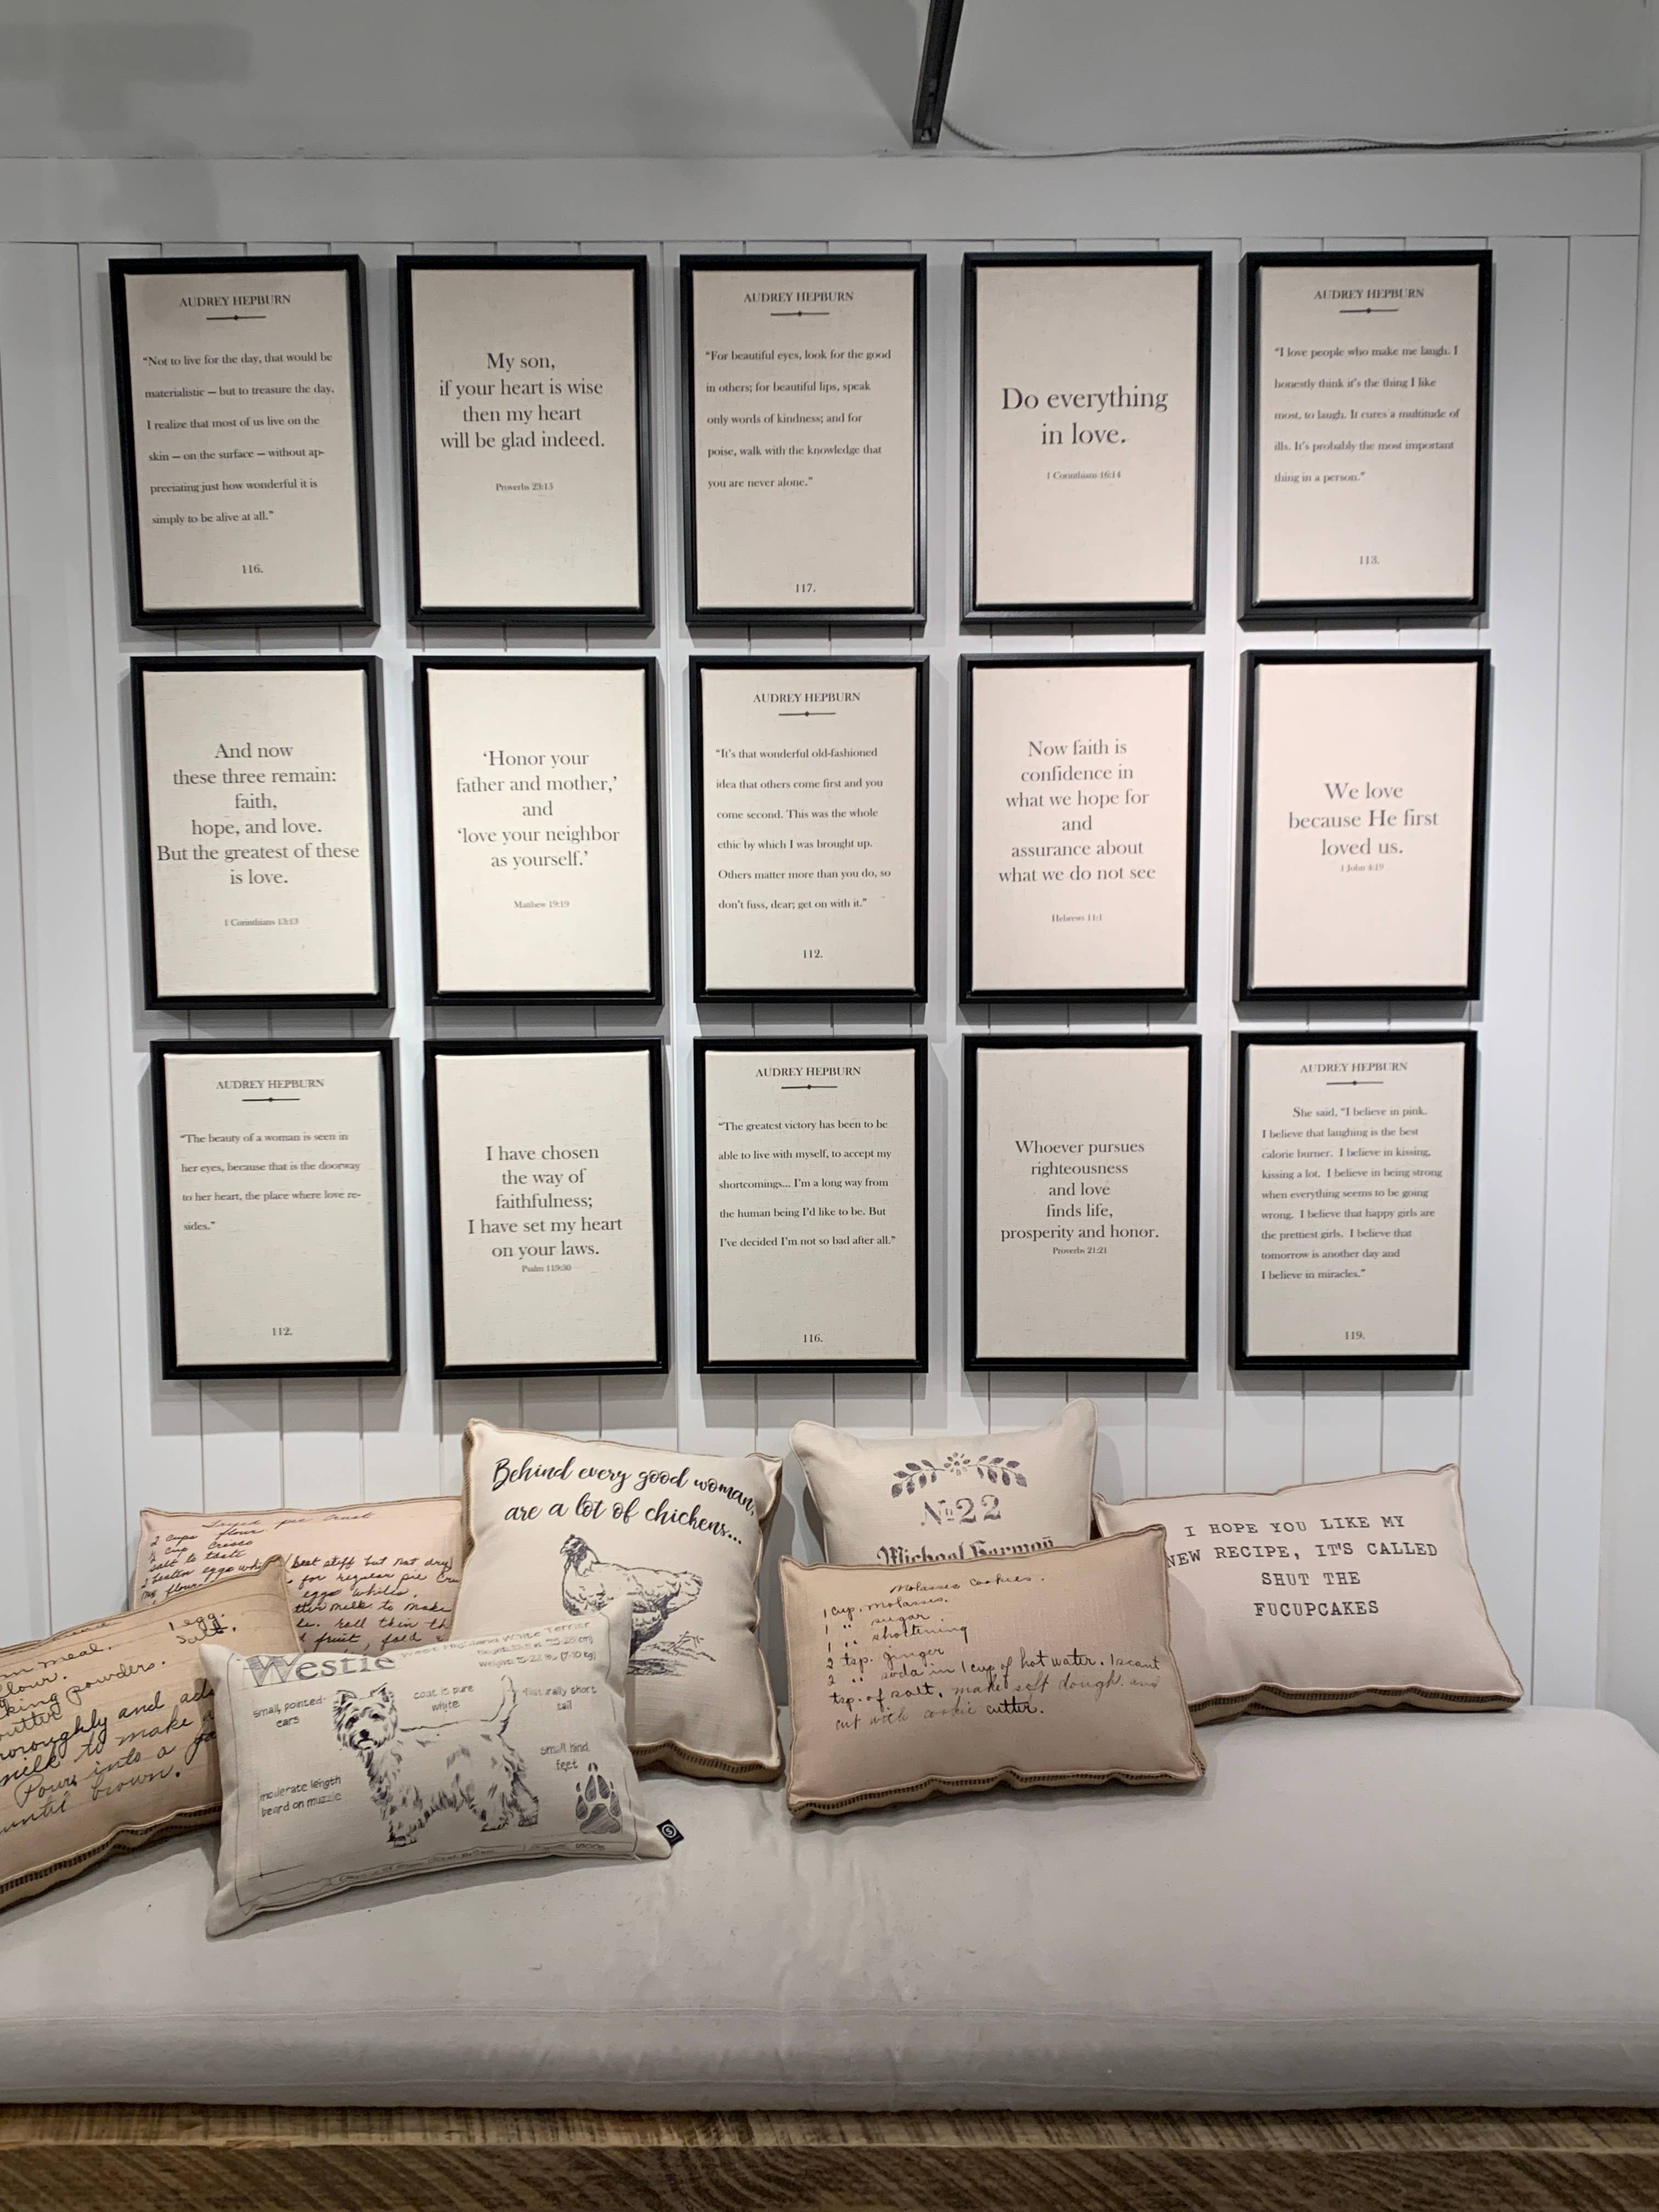 AUDREY HEPBURN
"Not to live for the day, that would be
materialistic — but to treasure the day.
I realize that most of us live on the
skin — on the surface — without ap-
preciating just how wonderful it is
simply to be alive at all."
116.
My son,
if your heart is wise
then my heart
will be glad indeed.
Proverbs 23:15
AUDREY HEPBURN
"For beautiful eyes, look for the good
in others; for beautiful lips, speak
only words of kindness; and for
poise, walk with the knowledge that
you are never alone."
117.
Do everything
in love.
1 Corinthians 16:14
AUDREY HEPBURN
"I love people who make me laugh. I
honestly think it's the thing I like
most, to laugh. It cures a multitude of
ills. It's probably the most important
thing in a person."
113.
And now
these three remain:
faith,
hope, and love.
But the greatest of these
is love.
1 Corinthians 13:13
'Honor your
father and mother,'
and
'love your neighbor
as yourself.'
Matthew 19:19
AUDREY HEPBURN
"It's that wonderful old-fashioned
idea that others come first and you
come second. This was the whole
ethic by which I was brought up.
Others matter more than you do, so
don't fuss, dear; get on with it."
112.
Now faith is
confidence in
what we hope for
and
assurance about
what we do not see
Hebrews 11:1
We love
because He first
loved us.
1 John 4:19
AUDREY HEPBURN
"The beauty of a woman is seen in
her eyes, because that is the doorway
to her heart, the place where love re-
sides."
112.
I have chosen
the way of
faithfulness;
I have set my heart
on your laws.
Psalm 119:30
AUDREY HEPBURN
"The greatest victory has been to be
able to live with myself, to accept my
shortcomings... I'm a long way from
the human being I'd like to be. But
I've decided I'm not so bad after all."
116.
Whoever pursues
righteousness
and love
finds life,
prosperity and honor.
Proverbs 21:21
AUDREY HEPBURN
She said, "I believe in pink.
I believe that laughing is the best
calorie burner. I believe in kissing,
kissing a lot. I believe in being strong
when everything seems to be going
wrong. I believe that happy girls are
the prettiest girls. I believe that
tomorrow is another day and
I believe in miracles."
119.
pie crust
2 cups flour
1/2 cup Crisco
salt to taste
2 beaten egg whi (beat stiff but not dry)
flour for regular pie
egg whites.
milk to make
roll thin
fruit, fold
1 egg.
meal. salt.
flour.
king powders.
butter
horoughly and add
milk to make
Pour into a
until brown.
Westie
West Highland White Terrier
small, pointed
ears
coat is pure
white
naturally short
tail
small hind
feet
moderate length
beard on muzzle
Behind every good woman,
are a lot of chickens...
№22
Michael Harmon
Molasses Cookies.
1 cup. molasses.
1 " sugar.
1 " shortening
2 tsp. ginger
2 " soda in 1 cup of hot water. 1 scant
tsp. of salt. make soft dough and
cut with cookie cutter.
I HOPE YOU LIKE MY
NEW RECIPE, IT'S CALLED
SHUT THE
FUCUPCAKES